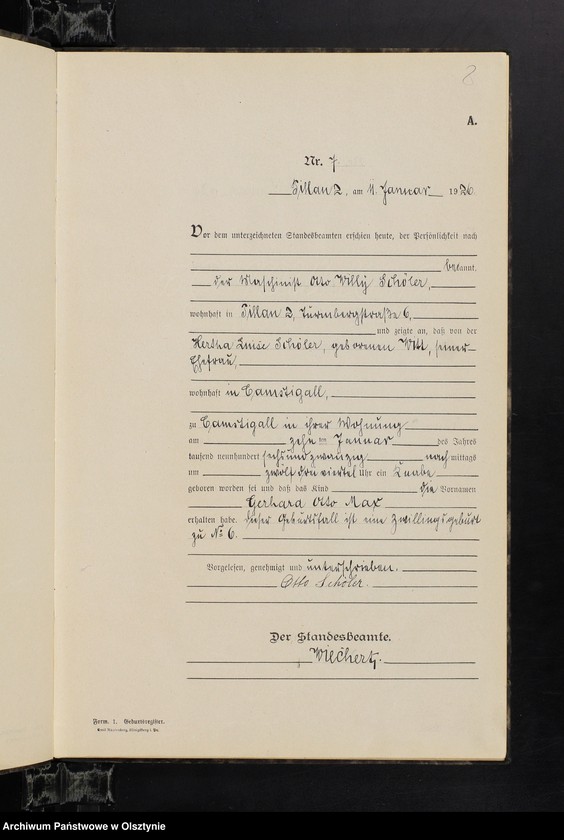 2
A.
Nr. 7
Pillau 2, am 11. Januar 1926
Vor dem unterzeichneten Standesbeamten erschien heute, der Persönlichkeit nach
bekannt,
der Maschinist Otto Willy Schöler,
wohnhaft in Pillau 2, Turmbergstraße 6,
und zeigte an, daß von der
Hertha Luise Schöler, geborenen Witt, seiner
Ehefrau,
wohnhaft in Camstigall,
zu Camstigall in ihrer Wohnung
am zehn ten Januar des Jahres
tausend neunhundert sechsundzwanzig nachmittags
um zwölf drei viertel Uhr ein Knabe
geboren worden sei und daß das Kind die Vornamen
Gerhard Otto Max
erhalten habe. Dieser Geburtsfall ist eine Zwillingsgeburt
zu No 6.
Vorgelesen, genehmigt und unterschrieben.
Otto Schöler.
Der Standesbeamte.
Wiechert.
Form. 1. Geburtsregister.
Archiwum Państwowe w Olsztynie